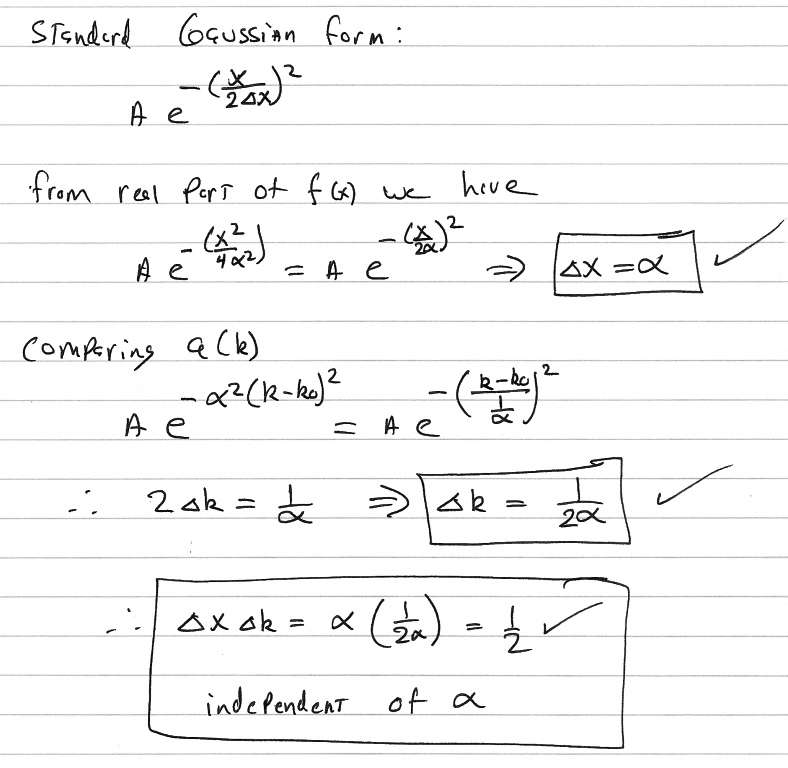 Standard Gaussian form:
A e^{-(x/2Δx)^2}
from real part of f(x) we have
A e^{-(x^2/4α^2)} = A e^{-(x/2α)^2} ⇒ Δx = α ✓
Comparing a(k)
A e^{-α^2(k-k_0)^2} = A e^{-((k-k_0)/(1/α))^2}
∴ 2Δk = 1/α ⇒ Δk = 1/2α ✓
∴ Δx Δk = α (1/2α) = 1/2 ✓
independent of α